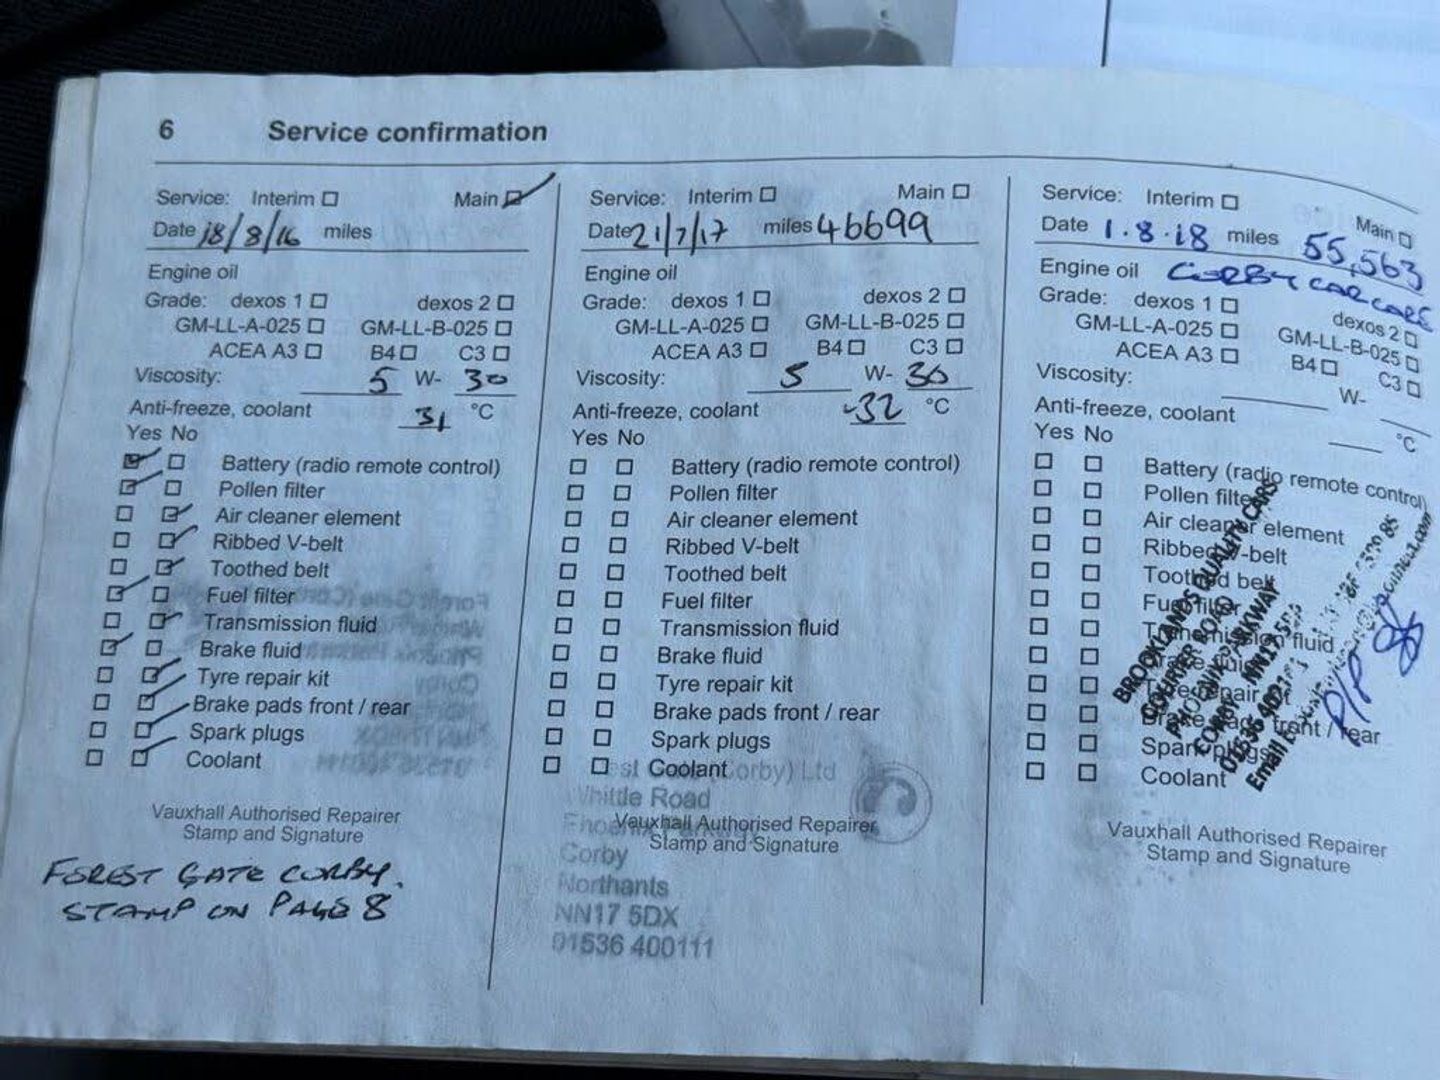 6 Service confirmation
Service: Interim Main
Date 18/8/16 miles
Engine oil
Grade: dexos 1 dexos 2
GM-LL-A-025 GM-LL-B-025
ACEA A3 B4 C3
Viscosity: 5 W- 30
Anti-freeze, coolant 31 °C
Yes No
Battery (radio remote control)
Pollen filter
Air cleaner element
Ribbed V-belt
Toothed belt
Fuel filter
Transmission fluid
Brake fluid
Tyre repair kit
Brake pads front / rear
Spark plugs
Coolant
Vauxhall Authorised Repairer
Stamp and Signature
FOREST GATE CORBY.
STAMP ON PAGE 8
Service: Interim Main
Date 21/7/17 miles 46699
Engine oil
Grade: dexos 1 dexos 2
GM-LL-A-025 GM-LL-B-025
ACEA A3 B4 C3
Viscosity: 5 W- 30
Anti-freeze, coolant -32 °C
Yes No
Battery (radio remote control)
Pollen filter
Air cleaner element
Ribbed V-belt
Toothed belt
Fuel filter
Transmission fluid
Brake fluid
Tyre repair kit
Brake pads front / rear
Spark plugs
Coolant
(Corby) Ltd
Whittle Road
Vauxhall Authorised Repairer
Stamp and Signature
Corby
Northants
NN17 5DX
01536 400111
Service: Interim Main
Date 1.8.18 miles 55,563
Engine oil CORBY CAR CARE
Grade: dexos 1 dexos 2
GM-LL-A-025 GM-LL-B-025
ACEA A3 B4 C3
Viscosity: W-
Anti-freeze, coolant °C
Yes No
Battery (radio remote control)
Pollen filter
Air cleaner element
Ribbed V-belt
Toothed belt
Fuel filter
Transmission fluid
Brake fluid
Tyre repair kit
Brake pads front / rear
Spark plugs
Coolant
BROOKLANDS QUALITY CARS
COURIER ROAD
PHOENIX PARKWAY
CORBY NN17
01536
Email
P/P
Vauxhall Authorised Repairer
Stamp and Signature